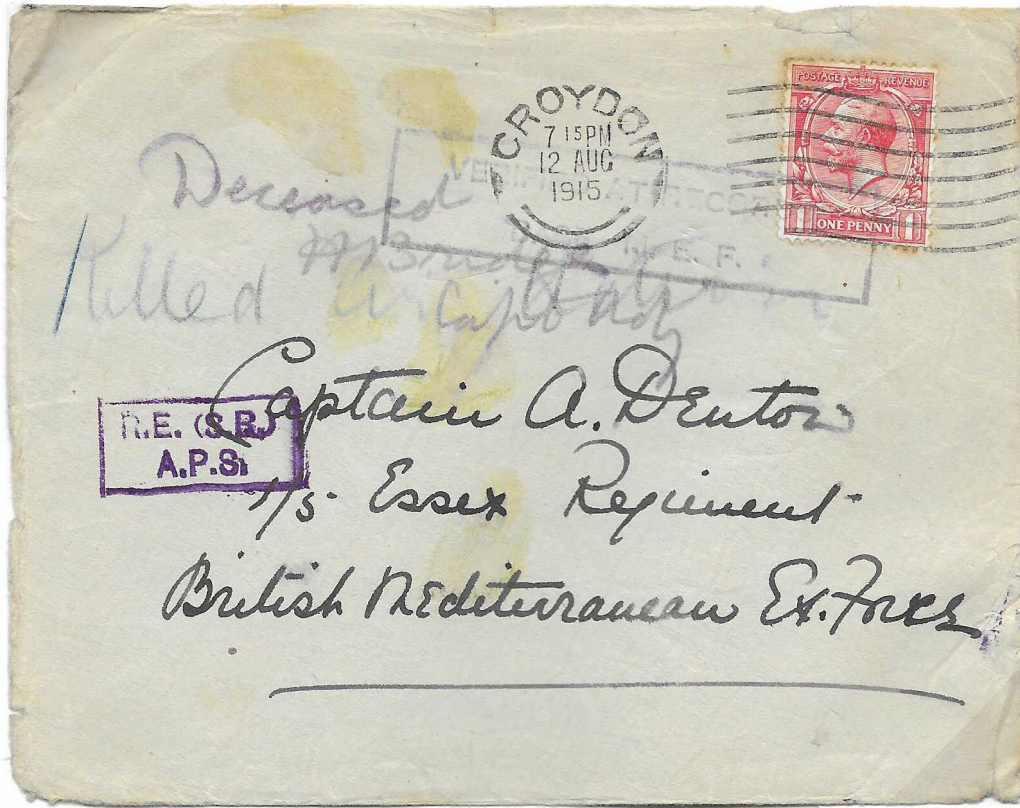 CROYDON
7 15 PM
12 AUG
1915
POSTAGE REVENUE
1 ONE PENNY 1
E. F.
Deceased
Killed
Captain A. Denton
R.E. (S.R.)
A.P.S.
1/5 Essex Regiment
British Mediterranean Ex. Force